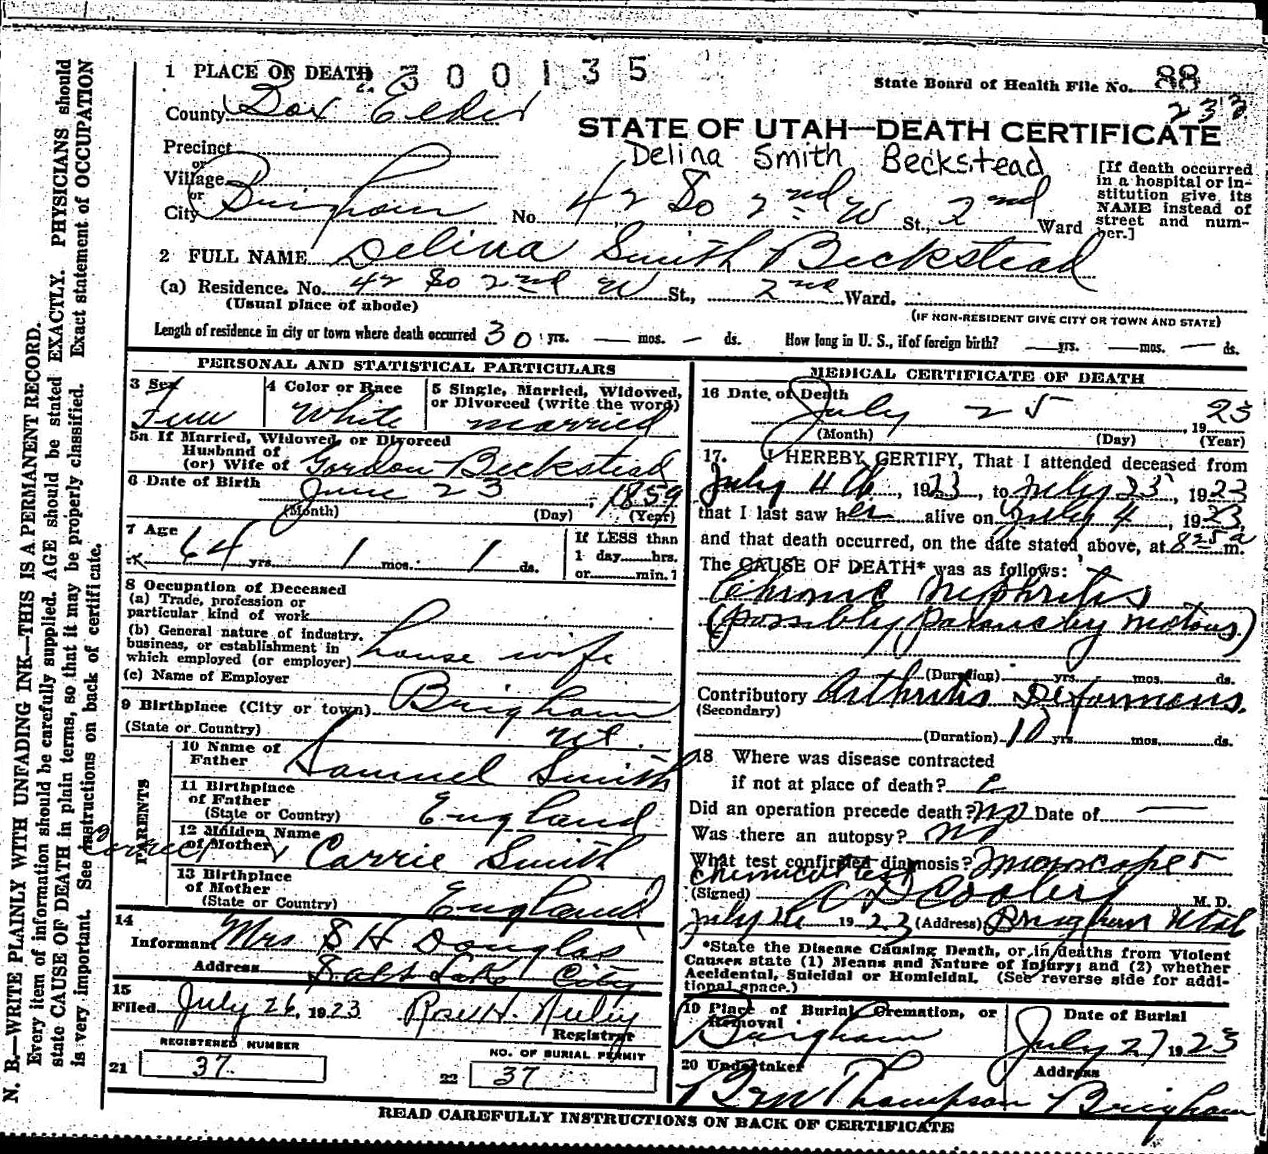 1 PLACE OF DEATH 2300135
State Board of Health File No. 88
233
County Box Elder
STATE OF UTAH—DEATH CERTIFICATE
Precinct
Delina Smith Beckstead
or
Village
or
City Brigham No. 42 So 2nd W St., 2nd Ward
[If death occurred in a hospital or institution give its NAME instead of street and number.]
2 FULL NAME Delina Smith Beckstead
(a) Residence. No. 42 So 2nd W St., 2nd Ward.
(Usual place of abode) (IF NON-RESIDENT GIVE CITY OR TOWN AND STATE)
Length of residence in city or town where death occurred 30 yrs. — mos. — ds. How long in U. S., if of foreign birth? — yrs. — mos. — ds.
PERSONAL AND STATISTICAL PARTICULARS
3 Sex Fem
4 Color or Race White
5 Single, Married, Widowed, or Divorced (write the word) married
5a If Married, Widowed, or Divorced
Husband of
(or) Wife of Gordon Beckstead
6 Date of Birth June 23, 1859
(Month) (Day) (Year)
7 Age
64 yrs. 1 mos. 1 ds.
If LESS than
1 day......hrs.
or......min.
8 Occupation of Deceased
(a) Trade, profession or
particular kind of work
(b) General nature of industry,
business, or establishment in
which employed (or employer) house wife
(c) Name of Employer
9 Birthplace (City or town) Brigham
(State or Country) Ut.
PARENTS
10 Name of
Father Samuel Smith
11 Birthplace
of Father
(State or Country) England
12 Maiden Name
of Mother Carrie Smith
13 Birthplace
of Mother
(State or Country) England
14
Informant Mrs S H Douglas
Address Salt Lake City
15
Filed July 26, 1923
Registrar
REGISTERED NUMBER
21 37
NO. OF BURIAL PERMIT
22 37
MEDICAL CERTIFICATE OF DEATH
16 Date of Death
July 25, 1923
(Month) (Day) (Year)
17. I HEREBY CERTIFY, That I attended deceased from
July 4th, 1923, to July 25, 1923
that I last saw her alive on July 4, 1923,
and that death occurred, on the date stated above, at 825a m.
The CAUSE OF DEATH* was as follows:
Chronic Nephritis
(possibly
(Duration) yrs. mos. ds.
Contributory Arthritis Deformans.
(Secondary)
(Duration) 10 yrs. mos. ds.
18 Where was disease contracted
if not at place of death?
Did an operation precede death? no Date of —
Was there an autopsy? no
What test confirmed diagnosis?
Chemical test
(Signed) M. D.
July 26 1923 (Address) Brigham Utah
*State the Disease Causing Death, or in deaths from Violent
Causes state (1) Means and Nature of Injury; and (2) whether
Accidental, Suicidal or Homicidal. (See reverse side for addi-
tional space.)
19 Place of Burial Cremation, or
Removal Brigham
Date of Burial
July 27 1923
20 Undertaker
Address
Thompson Brigham
READ CAREFULLY INSTRUCTIONS ON BACK OF CERTIFICATE
N. B.—WRITE PLAINLY WITH UNFADING INK—THIS IS A PERMANENT RECORD.
Every item of information should be carefully supplied. AGE should be stated EXACTLY. PHYSICIANS should
state CAUSE OF DEATH in plain terms, so that it may be properly classified. Exact statement of OCCUPATION
is very important. See instructions on back of certificate.